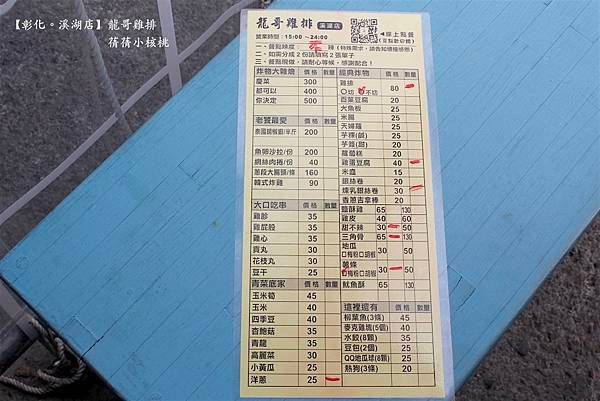 【彰化。溪湖店】龍哥雞排
蒨蒨小核桃
龍哥雞排 溪湖店
營業時間：15:00~24:00
◀線上點餐
一、餐點辣度： 辣 (特殊需求，請告知櫃檯感恩)
二、如需分成2份請填寫2張單子
三、餐點現做，請耐心等候，感謝配合！
炸物大雜燴 價格 數量
慶菜 300
都可以 400
你決定 500
老饕最愛 價格 數量
泰國胡椒蝦/半斤 200
魚卵沙拉/份 200
網絲肉捲/份 40
蔥段大腸頭/條 160
韓式炸雞 90
大口吃串 價格 數量
雞胗 35
雞屁股 35
雞心 35
貢丸 30
花枝丸 30
豆干 25
青菜底家 價格 數量
玉米筍 45
玉米 40
四季豆 40
杏鮑菇 35
青龍 35
高麗菜 30
小黃瓜 25
洋蔥 25
經典炸物 價格 數量
雞排 80
□切 □不切
百葉豆腐 20
大魚板 25
米腸 25
天婦羅 25
芋粿(鹹) 25
芋簽(甜) 20
蘿蔔糕 20
雞蛋豆腐 40
米血 15
銀絲卷 20
煉乳銀絲卷 30
香蔥吉拿棒 20
鹽酥雞 65 130
雞皮 40 60
甜不辣 30 50
三角骨 65 130
地瓜 30 50
□梅粉□胡椒
薯條 30 50
□梅粉□胡椒
魷魚酥 65 130
這裡還有 價格 數量
柳葉魚(3條) 45
麥克雞塊(5個) 40
水餃(8顆) 35
豆包(2個) 25
QQ地瓜球(8顆) 25
熱狗(3條) 20